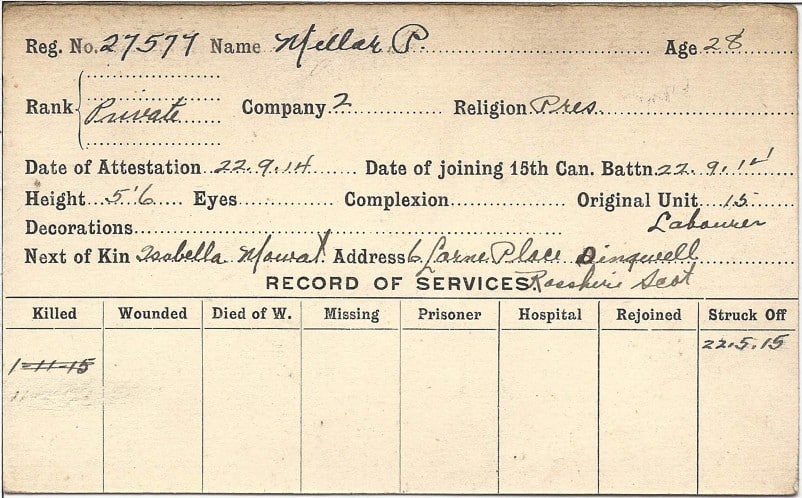 Reg. No. 27577 Name Millar P. Age 28
Rank Private Company 2 Religion Pres.
Date of Attestation 22.9.14 Date of joining 15th Can. Battn. 22.9.14
Height 5'6 Eyes Complexion Original Unit 15
Decorations Labourer
Next of Kin Isabella Mowat Address 6 Larne Place Dingwell
RECORD OF SERVICES Rosshire Scot
Killed Wounded Died of W. Missing Prisoner Hospital Rejoined Struck Off
22.5.15
1-11-15